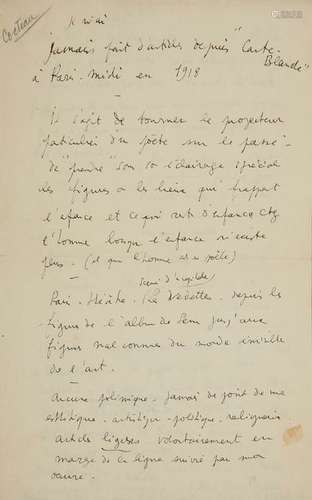 Cocteau
Je n'ai
jamais fait d'articles depuis "Carte
Blanche"
à Paris-Midi en 1918
Il s'agit de tourner le projecteur
particulier du poète sur le passé
de "prendre" sous son éclairage spécial
les figures et les lieux qui frappent
l'enfance et ce qui reste d'enfance chez
l'homme lorsque l'enfance n'existe
plus. (et que l'homme est un poète)
Paris. Théâtre. Vedettes. depuis les
figures de l'album de Sem jusqu'aux
figures mal connues du monde invisible
de l'art.
Aucune polémique. jamais de point de vue
esthétique. artistique. politique. religieux
articles légers volontairement en
marge de la ligne suivie par mon
œuvre.